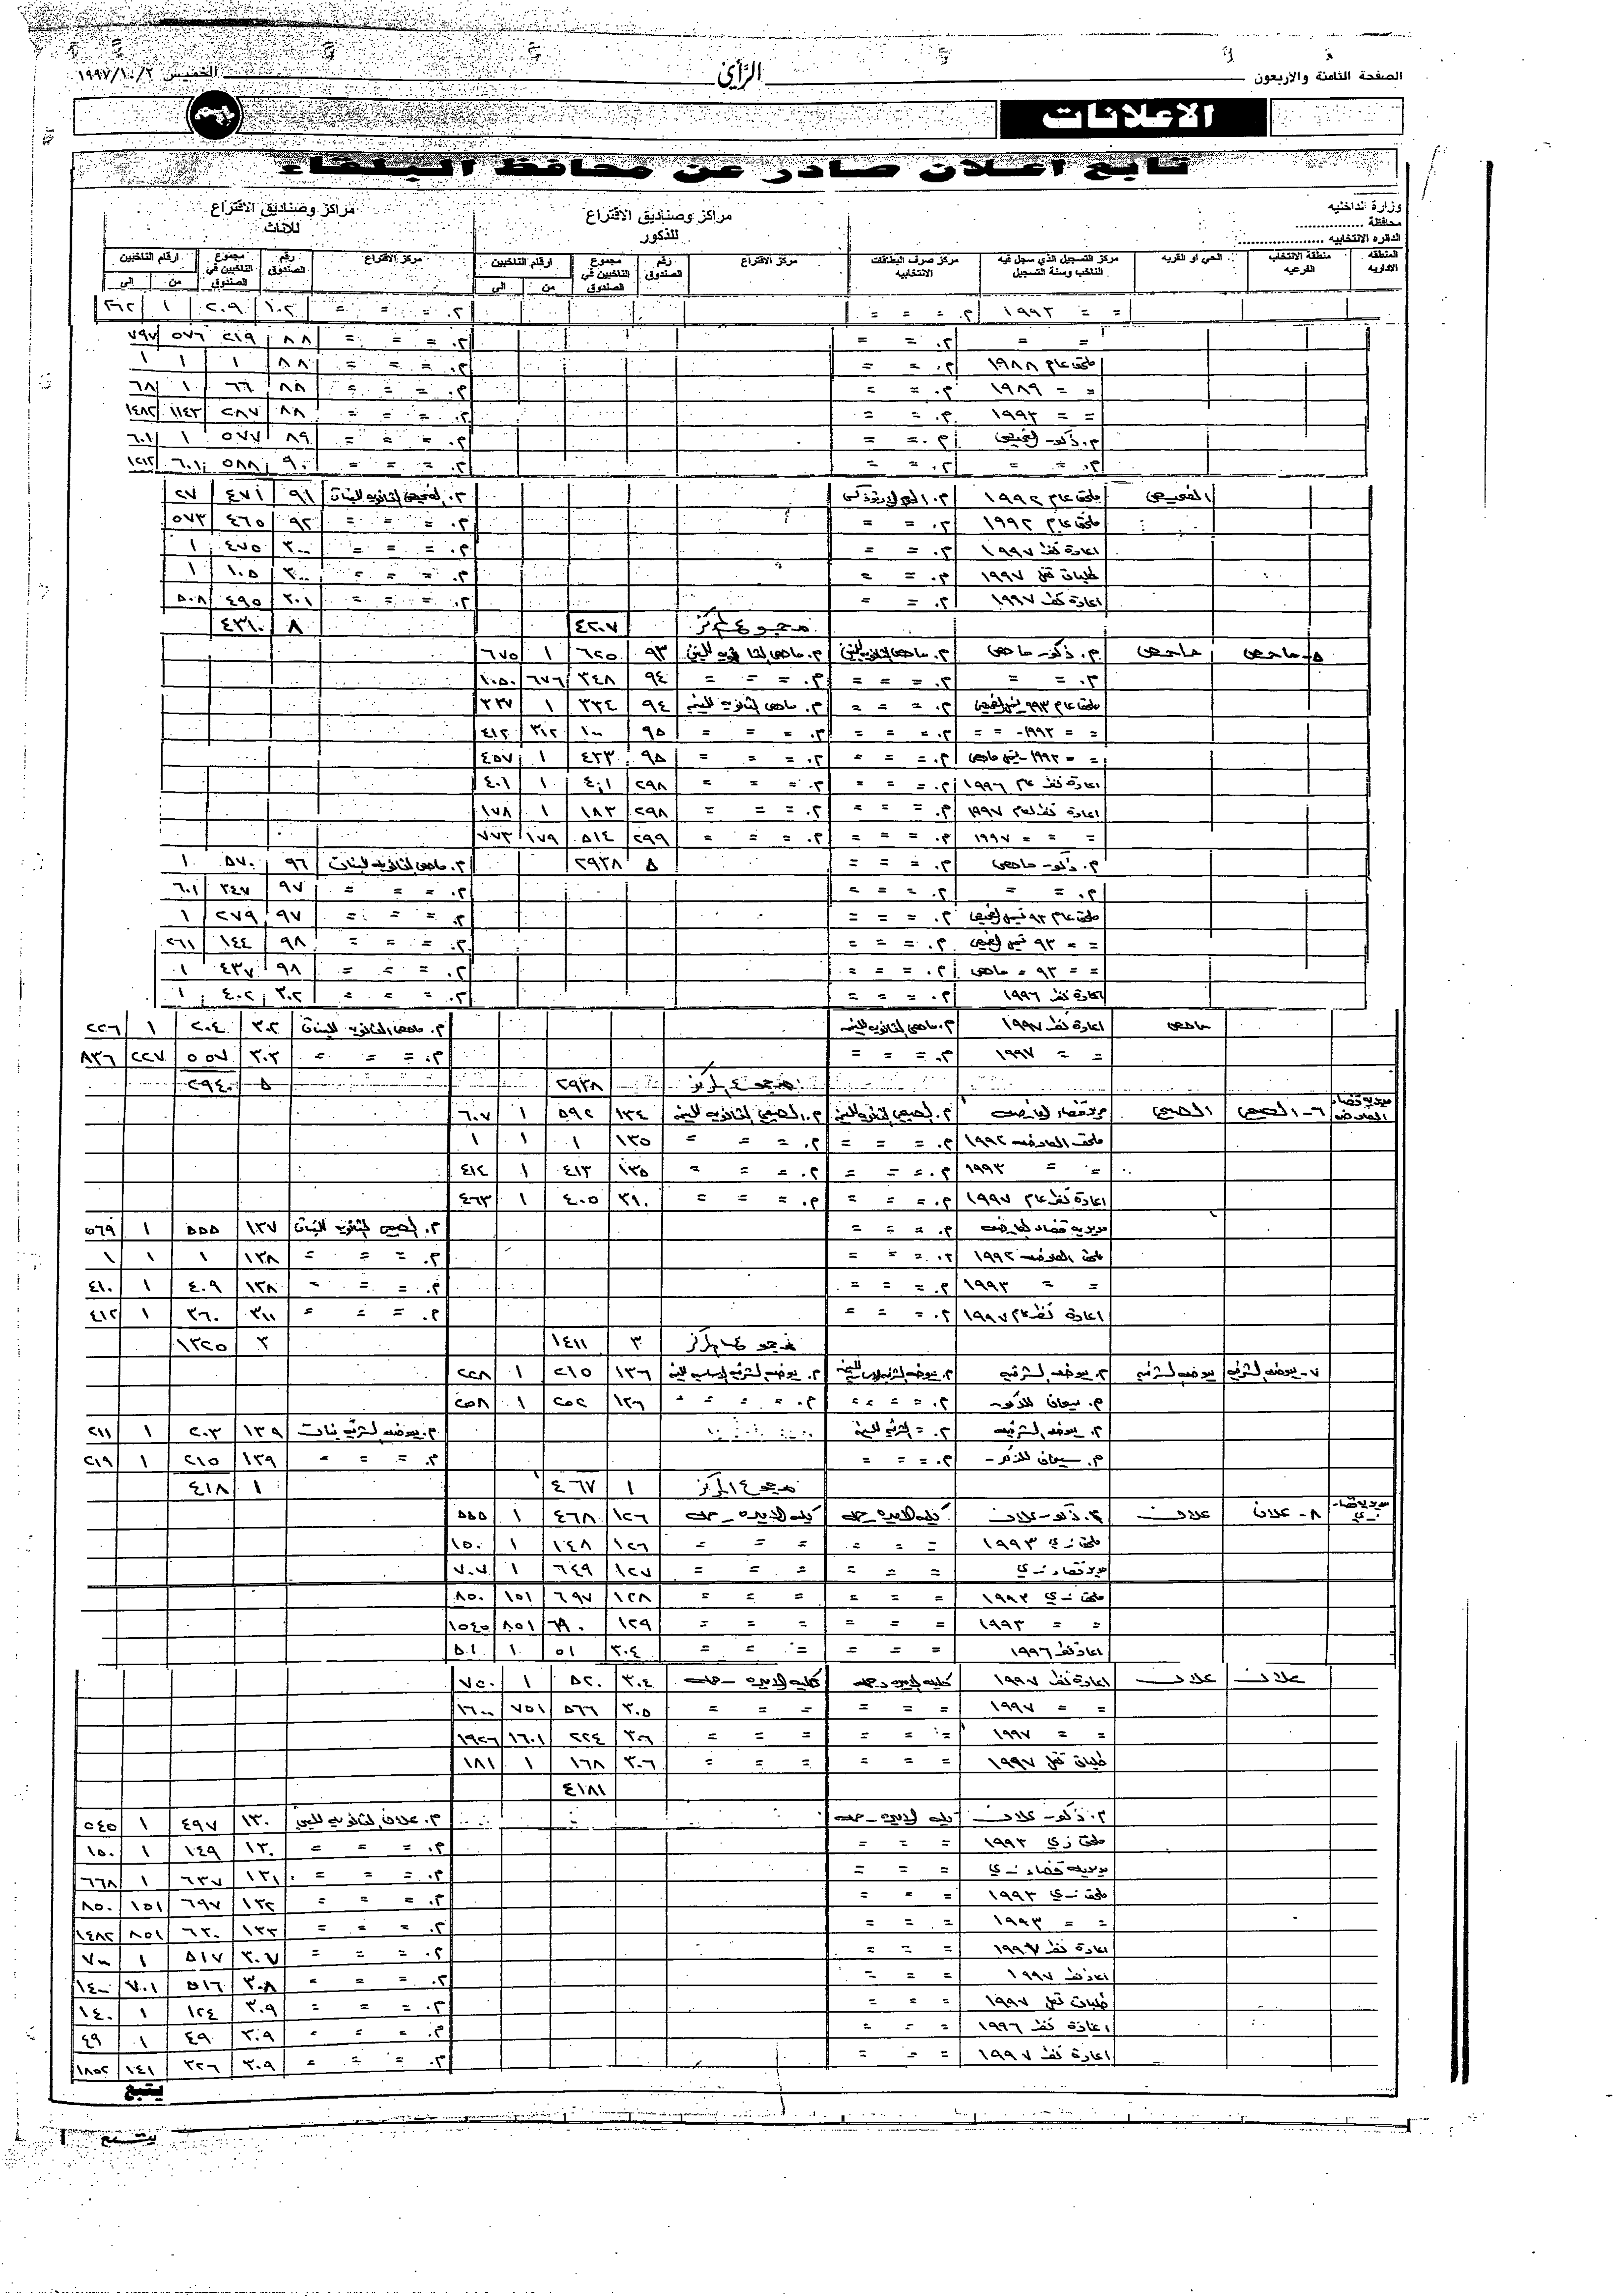 الصفحة الثامنة والأربعون
الرأي
الخميس ١٩٩٧/١٠/٢
الاعلانات
تابع اعلان صادر عن محافظ البلقاء
وزارة الداخليه
محافظة ....................
الدائره الانتخابيه ....................
مراكز وصناديق الاقتراع للذكور
مراكز وصناديق الاقتراع للاناث
المنطقه الاداريه | منطقة الانتخاب الفرعيه | الحي أو القريه | مركز التسجيل الذي سجل فيه الناخب وسنة التسجيل | مركز صرف البطاقات الانتخابيه | مركز الاقتراع | رقم الصندوق | مجموع الناخبين في الصندوق | ارقام الناخبين من الى | مركز الاقتراع | رقم الصندوق | مجموع الناخبين في الصندوق | ارقام الناخبين من الى
= = ١٩٩٣ م. = = = م. = = = ١٠٢ ٢٠٩ ١ ٢٦٢
= = م. = = م. = = = ٨٨ ٢١٩ ٥٧٦ ٧٩٧
ملحق عام ١٩٨٨ م. = = م. = = = ٨٨ ١ ١ ١
= = ١٩٨٩ م. = = م. = = = ٨٨ ٦٦ ١ ٦٨
= = ١٩٩٣ م. = = م. = = = ٨٨ ٢٨٧ ١١٤٣ ١٤٨٢
م. ذكور الفحيص م. = = م. = = = ٨٩ ٥٧٧ ١ ٦٠١
م. = = م. = = م. = = = ٩٠ ٥٨٨ ٦٠١ ١٢١٢
الفحيص ملحق عام ١٩٩٢ م. الفحيص الثانويه للبنات ٩١ ٤٧١ ٢٧
ملحق عام ١٩٩٢ م. = = م. = = = ٩٢ ٤٦٥ ٥٧٣
اعادة نظر ١٩٩٧ م. = = م. = = = ٣٠٠ ٢٧٥ ١
طلبات نقل ١٩٩٧ م. = = م. = = = ٣٠٠ ١٠٥ ١
اعادة نظر ١٩٩٧ م. = = م. = = = ٣٠١ ٤٩٥ ٥٠٨
مجموع المركز ٤٢٠٧ ٨ ٤٣٦٠
٥- ماحص ماحص م. ذكور ماحص م. ماحص الثانويه للبنين م. ماحص الثانويه للبنين ٩٣ ٦٢٥ ١ ٦٧٥
م. = = م. = = = م. = = = ٩٤ ٣٤٨ ٦٧٦ ١٠٥٠
ملحق عام ٩٩٣ م. = = = م. ماحص الثانويه للبنين ٩٤ ٣٣٤ ١ ٣٣٧
= = ١٩٩٣ = = م. = = = م. = = = ٩٥ ١٠٠ ٣١٢ ٤١٢
= = ١٩٩٣ ماحص م. = = = م. = = = ٩٥ ٤٢٣ ١ ٤٥٧
اعادة نظر عام ١٩٩٦ م. = = = م. = = = ٢٩٨ ٤٠١ ١ ٤٠١
اعادة نظر لعام ١٩٩٧ م. = = = م. = = = ٢٩٨ ١٨٣ ١ ١٧٨
= = = ١٩٩٧ م. = = = م. = = = ٢٩٩ ٥١٤ ١٧٩ ٧٧٣
م. ذكور ماحص م. = = = ٥ ٢٩٢٨ م. ماحص الثانويه للبنات ٩٦ ٥٧٠ ١
م. = = م. = = = م. = = = ٩٧ ٣٤٧ ٦٠١
ملحق عام ٩٣ الفحيص م. = = = م. = = = ٩٧ ٢٧٩ ١
= = ٩٣ الفحيص م. = = = م. = = = ٩٨ ١٤٤ ٢٦١
= = ٩٣ = ماحص م. = = = م. = = = ٩٨ ٤٣٧ ١
اعادة نظر ١٩٩٦ م. = = = م. = = = ٣٠٢ ٤٠٢ ١
ماحص اعادة نظر ١٩٩٧ م. ماحص الثانويه للبنين م. ماحص الثانويه للبنات ٣٠٢ ٢٠٤ ١ ٢٢٦
= = ١٩٩٧ م. = = = م. = = = ٣٠٣ ٥٥٧ ٢٢٧ ٨٣٦
مجموع المركز ٢٩٢٨ ٥ ٢٩٤٠
مديرية قضاء العارضه ٦- الصبيحي الصبيحي مديرية قضاء العارضه م. الصبيحي الثانويه للبنين م. الصبيحي الثانويه للبنين ١٣٤ ٥٩٢ ١ ٦٠٧
ملحق العارضه ١٩٩٢ م. = = = م. = = = ١٣٥ ١ ١ ١
= = ١٩٩٣ م. = = = م. = = = ١٣٥ ٤١٣ ١ ٤١٤
اعادة نظر عام ١٩٩٧ م. = = = م. = = = ٣١٠ ٤٠٥ ١ ٤٦٣
مديرية قضاء العارضه م. = = = م. الصبيحي الثانويه للبنات ١٣٧ ٥٥٥ ١ ٥٦٩
ملحق العارضه ١٩٩٢ م. = = = م. = = = ١٣٨ ١ ١ ١
= = ١٩٩٣ م. = = = م. = = = ١٣٨ ٤٠٩ ١ ٤١٠
اعادة نظر عام ١٩٩٧ م. = = = م. = = = ٣١١ ٣٦٠ ١ ٤١٢
مجموع المركز ٣ ١٤١١ ٣ ١٣٢٥
٧- بيوضه الشرقيه بيوضه الشرقيه م. بيوضه الشرقيه م. بيوضه الشرقيه الاساسيه للبنين م. بيوضه الشرقيه الاساسيه للبنين ١٣٦ ٢١٥ ١ ٢٢٨
م. سيحان للذكور م. = = = م. = = = ١٣٦ ٢٥٢ ١ ٢٥٨
م. بيوضه الشرقيه م. = الشرقيه للبنين م. بيوضه الشرقيه بنات ١٣٩ ٢٠٣ ١ ٢١١
م. سيحان للذكور م. = = = م. = = = ١٣٩ ٢١٥ ١ ٢١٩
مجموع المركز ١ ٤٦٧ ١ ٤١٨
مديرية قضاء زي ٨- علان علان م. ذكور علان كلية الاميره رحمه كلية الاميره رحمه ١٢٦ ٤٦٨ ١ ٥٥٥
ملحق زي ١٩٩٣ = = = = = = ١٢٦ ١٤٨ ١ ١٥٠
مديرية قضاء زي = = = = = = ١٢٧ ٦٤٩ ١ ٧٠٧
ملحق زي ١٩٩٣ = = = = = = ١٢٨ ٦٩٧ ١٥١ ٨٥٠
= = ١٩٩٣ = = = = = = ١٢٩ ٦٩٠ ٨٥١ ١٥٤٥
اعادة نظر ١٩٩٦ = = = = = = ٣٠٤ ٥١ ١ ٥١
علان علان اعادة نظر ١٩٩٧ كلية الاميره رحمه كلية الاميره رحمه ٣٠٤ ٥٢٠ ١ ٧٥٠
= = ١٩٩٧ = = = = = = ٣٠٥ ٥٦٦ ٧٥١ ١٦٠٠
= = ١٩٩٧ = = = = = = ٣٠٦ ٢٢٤ ١٦٠١ ١٩٢٦
طلبات نقل ١٩٩٧ = = = = = = ٣٠٦ ١٦٨ ١ ١٨١
٤١٨١
م. ذكور علان كلية الاميره رحمه م. علان الثانويه للبنين ١٣٠ ٤٩٧ ١ ٥٤٥
ملحق زي ١٩٩٣ = = = م. = = = ١٣٠ ١٤٩ ١ ١٥٠
مديرية قضاء زي = = = م. = = = ١٣١ ٦٣٧ ١ ٦٦٨
ملحق زي ١٩٩٣ = = = م. = = = ١٣٢ ٦٩٧ ١٥١ ٨٥٠
= = ١٩٩٣ = = = م. = = = ١٣٣ ٦٣٠ ٨٥١ ١٤٨٢
اعادة نظر ١٩٩٧ = = = م. = = = ٣٠٧ ٥١٧ ١ ٧٠٠
اعادة نظر ١٩٩٧ = = = م. = = = ٣٠٨ ٥١٦ ٧٠١ ١٤٠٠
طلبات نقل ١٩٩٧ = = = م. = = = ٣٠٩ ١٢٤ ١ ١٤٠
اعادة نظر ١٩٩٦ = = = م. = = = ٣٠٩ ٤٩ ١ ٤٩
اعادة نظر ١٩٩٧ = = = م. = = = ٣٠٩ ٣٢٦ ١٤١ ١٨٥٢
يتبع
يتبع